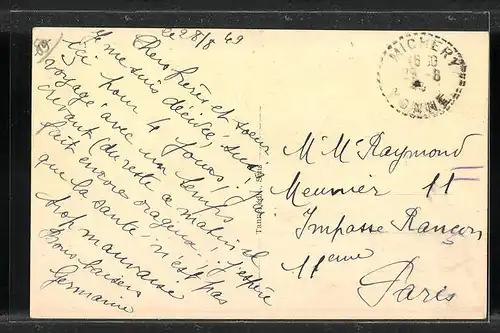 le 28/8 49
Chers frères et soeur
Je me suis décidée, suis
ici pour 4 jours,
voyagé avec un temps
(du reste a matin, il
fait encore orageux... j'espère
que la santé n'est pas
trop mauvaise
Bons baisers
Germaine
MICHERY
YONNE
Mr Me Raymond
Meunier 11
Impasse Rançon
11eme
Paris